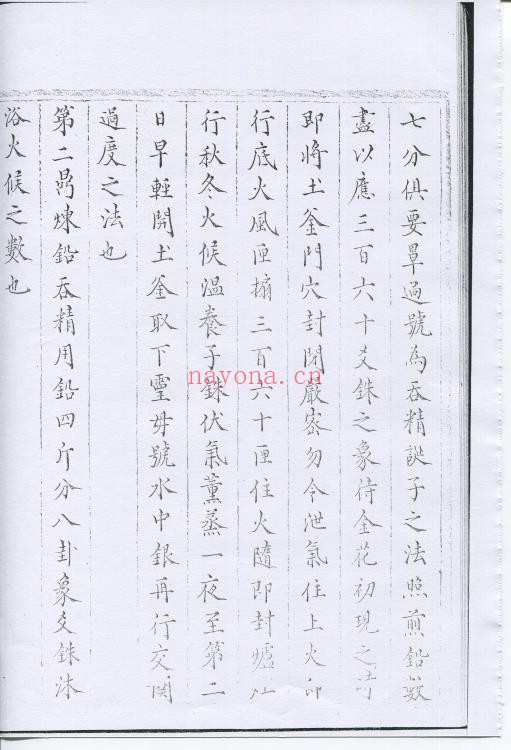 七分俱要罩過號為吞精誕子之法照煎鉛數
盡以應三百六十爻銖之象待金花初現之時
即將土釜門穴封閉嚴密勿令泄氣住上火即
行底火風匣搧三百六十匣住火隨即封爐灶
行秋冬火候溫養子銖伏氣薰蒸一夜至第二
日早輕開土釜取下靈母號水中銀再行交関
過度之法也
第二鼎煉鉛吞精用鉛四斤分八卦象爻銖沐
浴火候之數也
nayona.cn